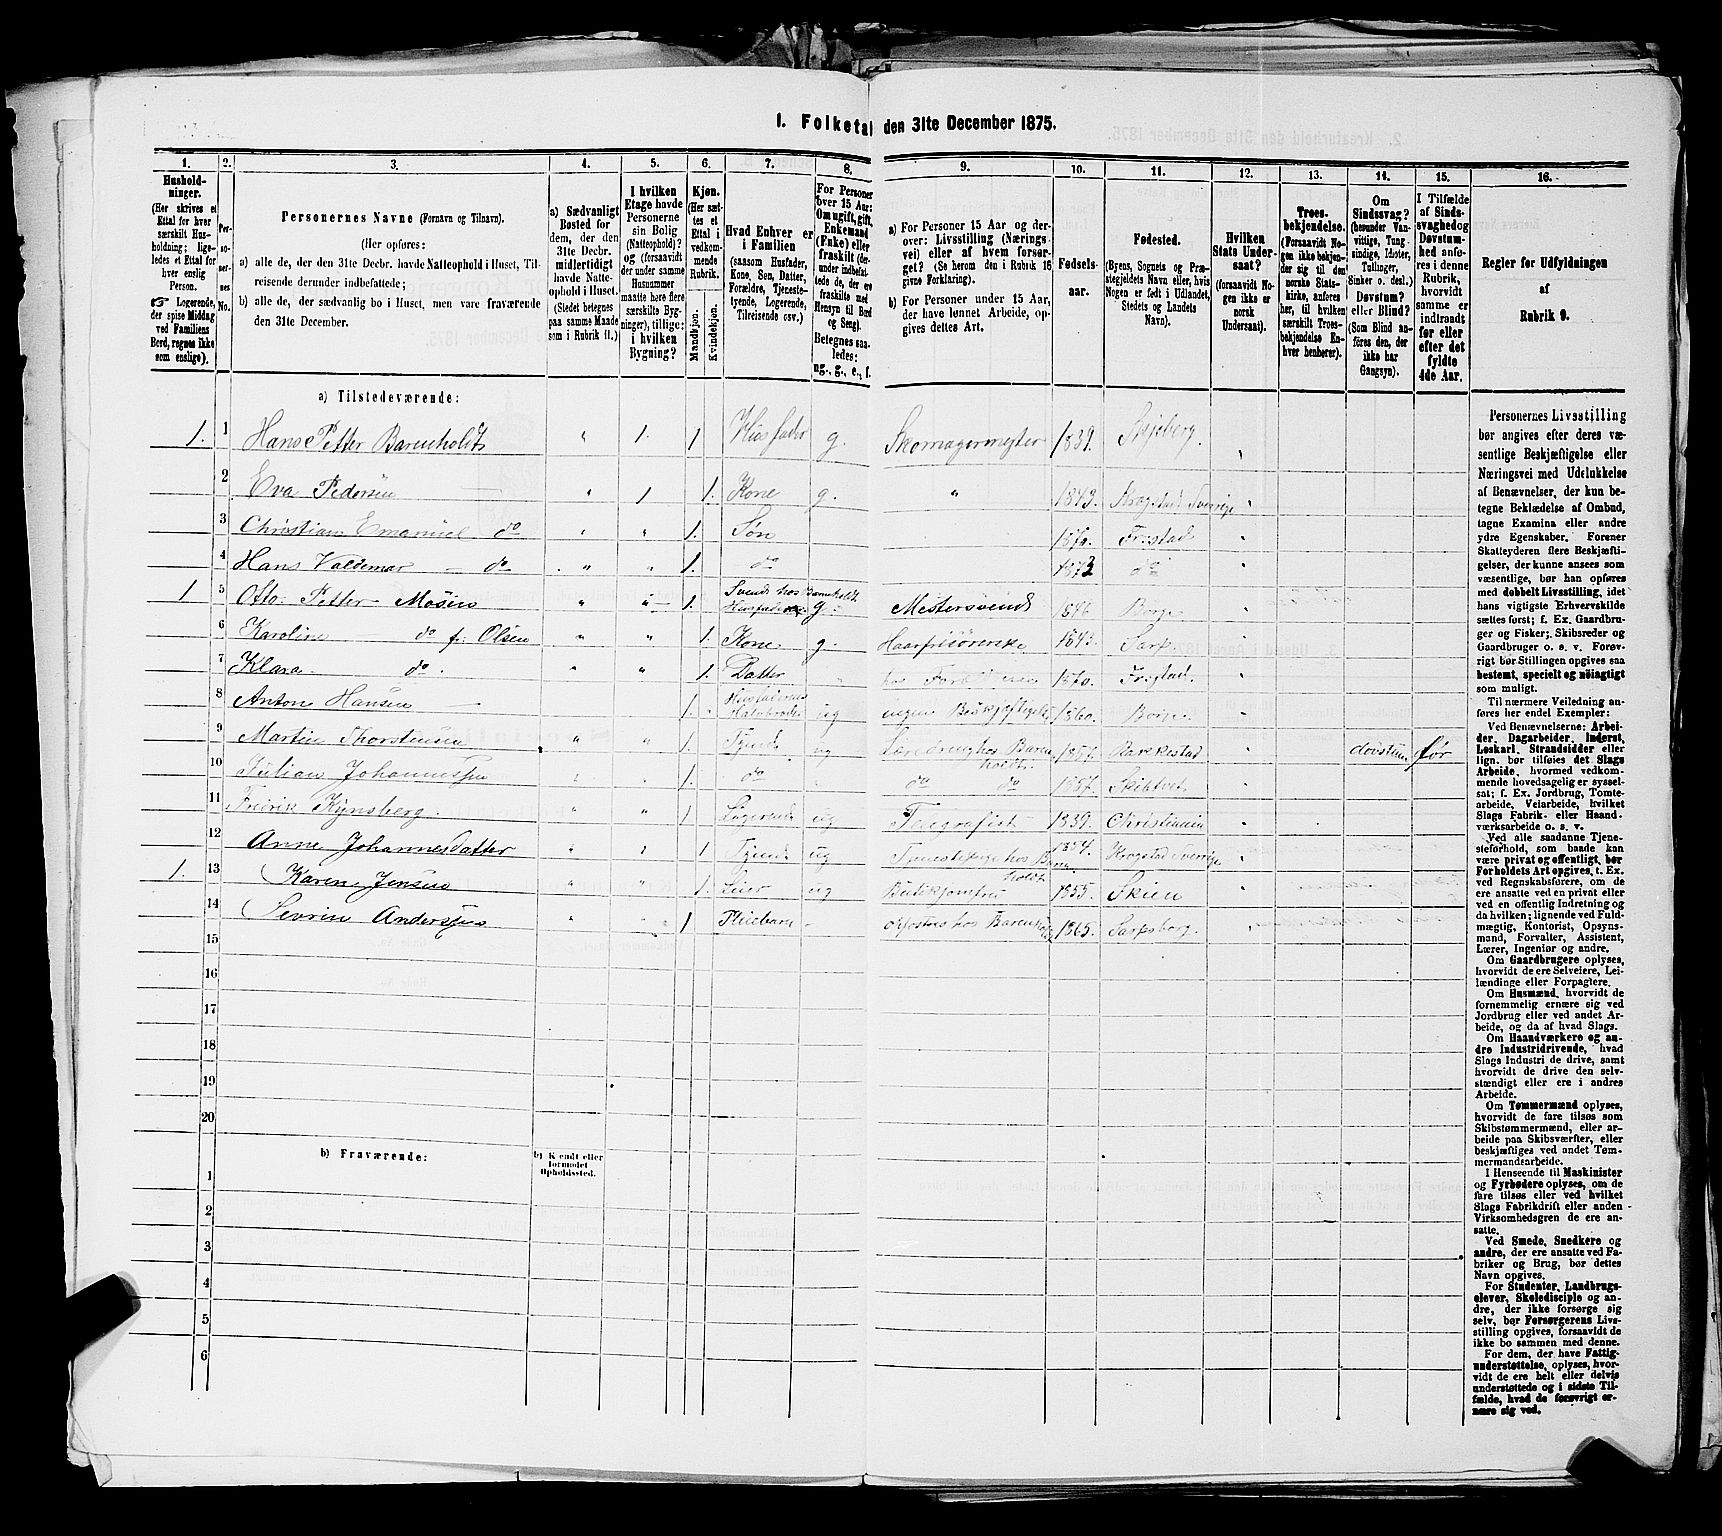 1. Folketal den 31te December 1875.
1. 2. 3. 4. 5. 6. 7. 8. 9. 10. 11. 12. 13. 14. 15. 16.
Hushold-
ninger.
(Her skrives et
Ettal for hver
særskilt Hus-
holdning; lige-
ledes et Ettal for
hver enslig
Person.
☞ Logerende,
der spise Middag
ved Familiens
Bord, regnes ikke
som enslige).
Per-
so-
ner-
nes
No.
Personernes Navne (Fornavn og Tilnavn).
(Her opføres:
a) alle de, der den 31te Decbr. havde Natteophold i Huset, Til-
reisende derunder indbefattede;
b) alle de, der sædvanlig bo i Huset, men vare fraværende
den 31te December.
a) Sædvanligt
Bosted for
dem, der den
31te Decbr.
midlertidigt
havde Natte-
ophold i Huset.
(Stedet betegnes
paa samme Maade
som i Rubrik 11.)
I hvilken
Etage havde
Personerne
sin Bolig
(Natteophold)?
og (forsaavidt
der under samme
Husnummer
maatte høre flere
særskilte Byg-
ninger), tillige:
i hvilken
Bygning?
Kjøn.
(Her sæt-
tes et
Ettal i
vedkom-
mende
Rubrik.
Mandkjøn.
Kvindekjøn.
Hvad Enhver er
i Familien
(saasom Husfader,
Kone, Søn, Datter,
Forældre, Tjeneste-
tyende, Logerende,
Tilreisende osv.)
For Personer
over 15 Aar:
Om ugift, gift,
Enkemand
(Enke) eller
fraskilt
(derunder indbefat-
tede de, der ere
fraskilte med
Hensyn til Bord
og Seng).
Betegnes saa-
ledes:
ug., g., e., f.
a) For Personer 15 Aar og der-
over: Livsstilling (Nærings-
vei) eller af hvem forsør-
get? (Se herom den i Rubrik 16
givne Forklaring).
b) For Personer under 15 Aar,
der have lønnet Arbeide, op-
gives dettes Art.
Fødsels-
aar.
Fødested.
(Byens, Sognets og Præ-
stegjeldets Navn eller, hvis
Nogen er født i Udlandet,
Stedets og Landets
Navn).
Hvilken
Stats Under-
saat?
(forsaavidt No-
gen ikke er
norsk
Undersaat).
Troes-
bekjendelse.
(Forsaavidt No-
gen ikke bekjen-
der sig til den
norske Stats-
kirke, anføres
her, til hvilken
særskilt Troes-
bekjendelse En-
hver henhører).
Om
Sindssvag?
(herunder Van-
vittige, Tung-
sindige, Idioter,
Tullinger,
Sinker o. desl.)
Døvstum?
eller Blind?
(Som Blind an-
føres den, der
ikke har
Gangsyn).
I Tilfælde
af Sinds-
svaghed og
Døvstum-
hed anfø-
res i denne
Rubrik,
hvorvidt
samme er
indtraadt
før eller
efter det
fyldte
4de Aar.
Regler for Udfyldningen
af
Rubrik 9.
a) Tilstedeværende:
1. 1 Hans Petter Barenholdt " 1. 1 Husfader g. Skomagermester 1839. Skjeberg.
2 Eva Pedersen " 1 1. Kone g. " 1843. Krogstad Sverige
3 Christian Emanuel do " " 1. Søn 1870. Fr.stad
4 Hans Valdemar - do " " 1. do 1873 do
1 5 Otto Petter Mosen " " 1. Svend hos Barenholdt. Husfader g. Mestersvend 1846. Borge
6 Karoline do f. Olsen " " 1. Kone g. 1843. Sarp.
7 Klara do. " " 1. Datter 1870. Fr.stad.
8 Anton Hansen 1. Husfaderens Halvbroder ug ingen Beskjæftigelse 1860. Borge
9 Martin Thorstensen " " 1. Tjener ug hos Barenholdt. 1857. Rakkestad døvstum før
10 Julian Johannessen 1. do do do 1857. Skibtvet
11 Fredrik Kynsberg. " " 1 Logerende ug Telegrafist 1839. Christiania
12 Anne Johannesdatter " " 1 Tjener ug Tjenestepige hos Barenholdt 1854. Krogstad Sverige
1. 13 Karen Jensen " " 1. Leier ug Butikjomfru 1855. Skien
14 Sevrin Anderssen " " 1 Pleiebarn - hos Barenholdt 1865. Sarpsborg.
15
16
17
18
19
20
b) Fraværende:
b) Kjendt eller
formodet
Opholdssted.
1
2
3
4
5
6
Personernes Livsstilling
bør angives efter deres væ-
sentlige Beskjæftigelse eller
Næringsvei med Udelukkelse
af Benævnelser, der kun be-
tegne Beklædelse af Ombud,
tagne Examina eller andre
ydre Egenskaber. Forener
Skatteyderen flere Beskjæfti-
gelser, der kunne ansees som
væsentlige, bør han opføres
med dobbelt Livsstilling, idet
hans vigtigste Erhvervskilde
sættes først; f. Ex. Gaardbru-
ger og Fisker; Skibsreder og
Gaardbruger o. s. v. Forøv-
rigt bør Stillingen opgives saa
bestemt, specielt og nøiagtigt
som muligt.
Til nærmere Veiledning an-
føres her endel Exempler:
Ved Benævnelserne: Arbei-
der, Dagarbeider, Inderst,
Løskarl, Strandsidder eller
lign. bør tilføies det Slags
Arbeide, hvormed vedkom-
mende hovedsagelig er syssel-
sat; f. Ex. Jordbrug, Tomte-
arbeide, Veiarbeide, hvilket
Slags Fabrik- eller Haand-
værksarbeide o. s. v.
Ved alle saadanne Tjene-
steforhold, som baade kan
være privat og offentligt, bør
Forholdets Art opgives, t. Ex.
ved Regnskabsførere, om de
ere ansatte ved en privat eller
ved en offentlig Indretning og
da hvilken; lignende ved Fuld-
mægtig, Kontorist, Opsyns-
mand, Forvalter, Assistent,
Lærer, Ingeniør og andre.
Om Gaardbrugere oplyses,
hvorvidt de ere Selveiere, Lei-
lændinge eller Forpagtere.
Om Husmænd, hvorvidt de
fornemmelig ernære sig ved
Jordbrug eller ved andet Ar-
beide, og da af hvad Slags.
Om Haandværkere og an-
dre Industridrivende, hvad
Slags Industri de drive, samt
hvorvidt de drive den selv-
stændigt eller ere i andres
Arbeide.
Om Tømmermænd oplyses,
hvorvidt de fare tilsøs som
Skibstømmermænd, eller ar-
beide paa Skibsværfter, eller
beskjæftiges ved andet Tøm-
mermandsarbeide.
I Henseende til Maskinister
og Fyrbødere oplyses, om de
fare tilsøs eller ved hvilket
Slags Fabrikdrift eller anden
Virksomhedsgren de ere an-
satte.
Ved Smede, Snedkere og
andre, der ere ansatte ved Fa-
briker og Brug, bør dettes
Navn opgives.
For Studenter, Landbrugs-
elever, Skoledisciple og an-
dre, der ikke forsørge sig
selv, bør Forsørgerens Livs-
stilling opgives, forsaavidt de
ikke bo sammen med denne.
For dem, der have Fattig-
understøttelse, oplyses, hvor-
vidt de ere helt eller delvis
understøttede og i sidste Til-
fælde, hvad de forøvrigt er-
nære sig ved.